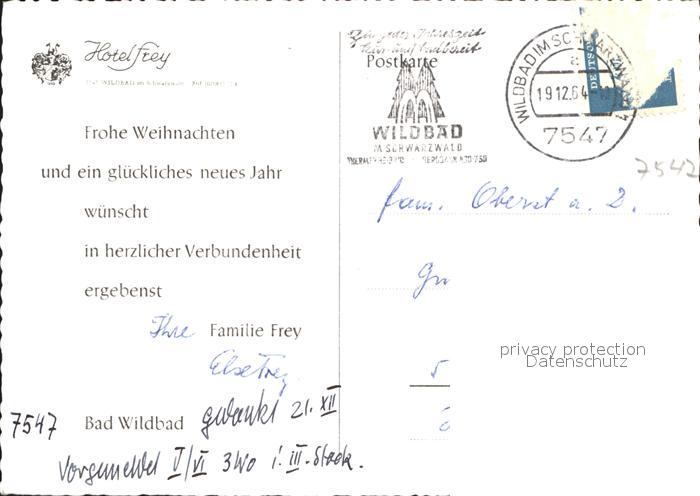 Hotel Frey
Frohe Weihnachten
und ein glückliches neues Jahr
wünscht
in herzlicher Verbundenheit
ergebenst
Ihre Familie Frey
Else Frey
7547 Bad Wildbad gedankt 21. XII
Vorgemerkt V/VI 3 Wo i. III. Stock.
Postkarte
WILDBAD
IM SCHWARZWALD
WILDBAD IM SCHWARZWALD
a
19.12.64
7547
DEUTSCHE
7547
Fam. Oberst a. D.
privacy protection
Datenschutz